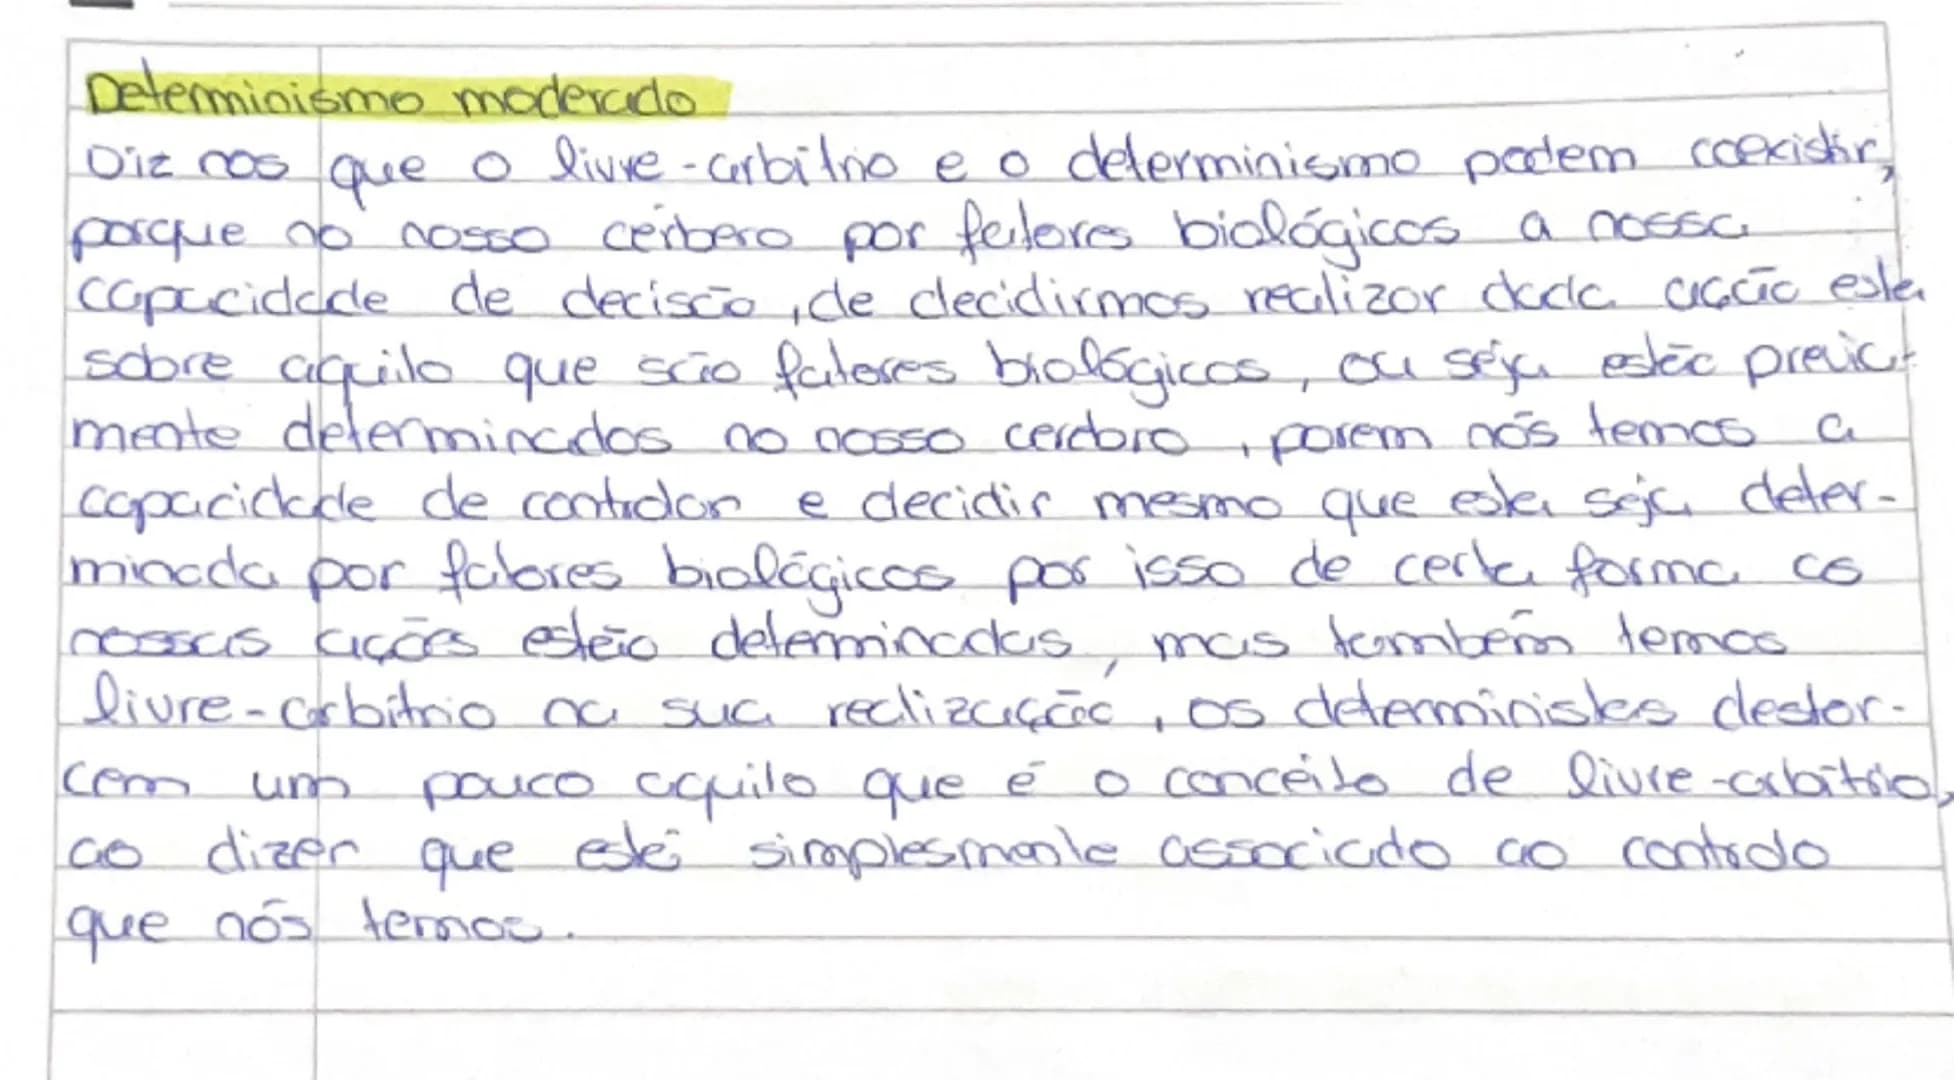 Determinismo moderado
Diz nos que o livre-arbitrio e o determinismo podem coexistir,
porque no nosso cérbero por fatores biológicos a nossa
capacidade de decisão, de decidirmos realizar dada acção esta
sobre aquilo que são fatores biológicos, ou seja estão previa-
mente determinados no nosso cerebro, porem nós temos a
capacidade de controlar e decidir mesmo que esta seja deter-
minada por fatores biológicos por isso de certa forma as
nossas ações estão determinadas, mas também temos
livre-arbitrio na sua realização, os deterministas destor-
cem um pouco aquilo que é o conceito de livre-arbitrio,
ao dizer que está simplesmente associado ao controlo
que nós temos.